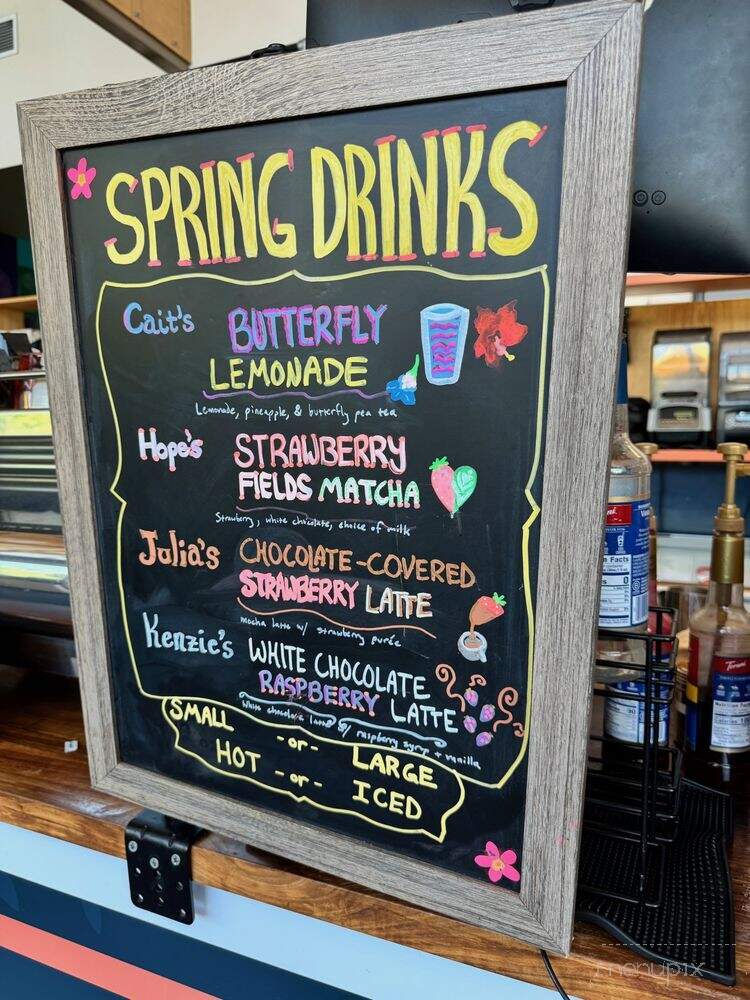 SPRING DRINKS
Cait's BUTTERFLY
LEMONADE
Lemonade, pineapple, & butterfly pea tea
Hope's STRAWBERRY
FIELDS MATCHA
Strawberry, white chocolate, choice of milk
Julia's CHOCOLATE-COVERED
STRAWBERRY LATTE
mocha latte w/ strawberry purée
Kenzie's WHITE CHOCOLATE
RASPBERRY LATTE
White chocolate latte w/ raspberry syrup + vanilla
SMALL -or- LARGE
HOT -or- ICED
Torani
Nutrition Facts
menupix